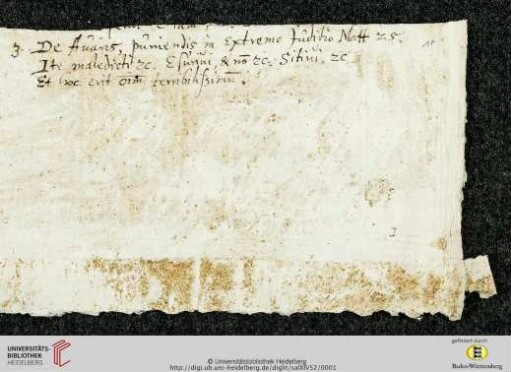 3. De Avaris, puniendis in Extremo Juditio Matt 25.
Ite maledicti ꝛc. Esurivi, & nō ꝛc. Sitivi, ꝛc
Et hoc erit om̄ terribilissimū.
3
UNIVERSITÄTS-
BIBLIOTHEK
HEIDELBERG
© Universitätsbibliothek Heidelberg
http://digi.ub.uni-heidelberg.de/diglit/salXIV52/0001
gefördert durch
Baden-Württemberg